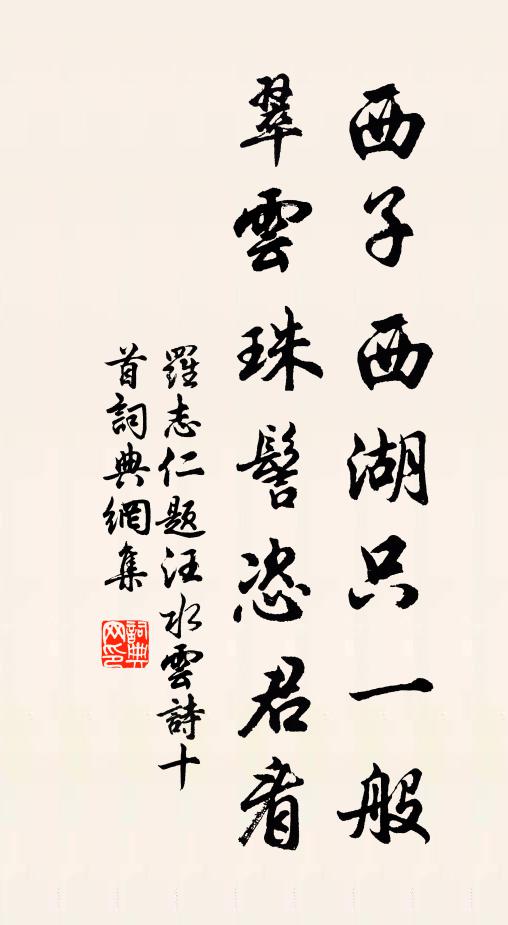 西子西湖只一般
翠雲珠髻恣君看
羅志仁題汪水雲詩十
首詞典網集
詞典
网印